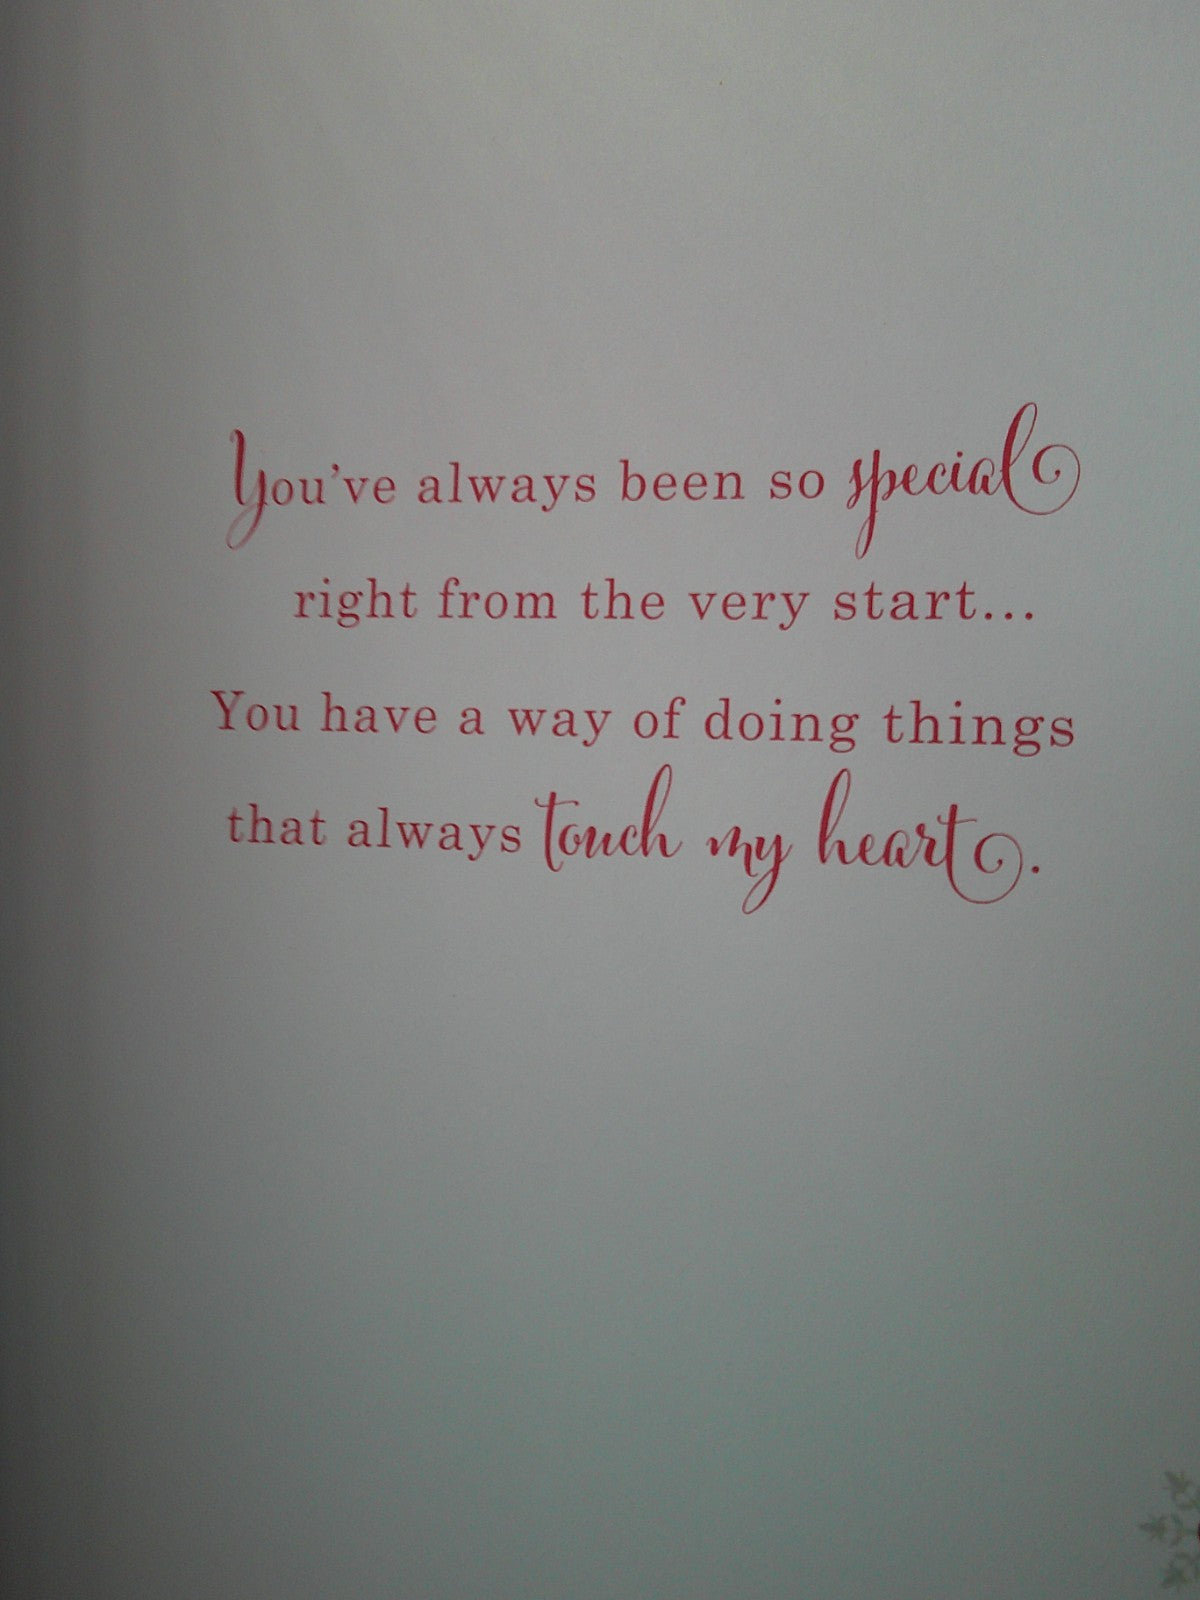 You've always been so special
right from the very start...
You have a way of doing things
that always touch my heart.